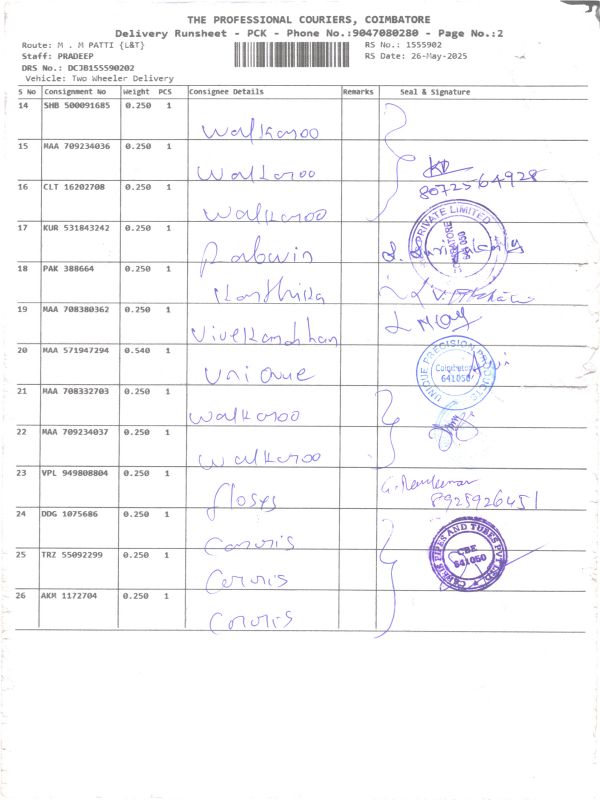 THE PROFESSIONAL COURIERS, COIMBATORE
Delivery Runsheet - PCK - Phone No.:9047080280 - Page No.:2
Route: M . M PATTI {L&T} RS No.: 1555902
Staff: PRADEEP RS Date: 26-May-2025
DRS No.: DCJB155590202
Vehicle: Two Wheeler Delivery
S No Consignment No Weight PCS Consignee Details Remarks Seal & Signature
14 SHB 500091685 0.250 1
Walkaroo
15 MAA 709234036 0.250 1
Walkaroo
80725 64928
16 CLT 16202708 0.250 1
Walkaroo
17 KUR 531843242 0.250 1
PRIVATE LIMITED
COIMBATORE
18 PAK 388664 0.250 1
Karthika
19 MAA 708380362 0.250 1
20 MAA 571947294 0.540 1
UNIQUE PRECISION PRODUCTS
Coimbatore
641050
Unique
21 MAA 708332703 0.250 1
Walkaroo
22 MAA 709234037 0.250 1
Walkaroo
23 VPL 949808804 0.250 1
8925926451
24 DDG 1075686 0.250 1
PIPES AND TUBES PVT LTD
CBE
641050
25 TRZ 55092299 0.250 1
26 AKM 1172704 0.250 1